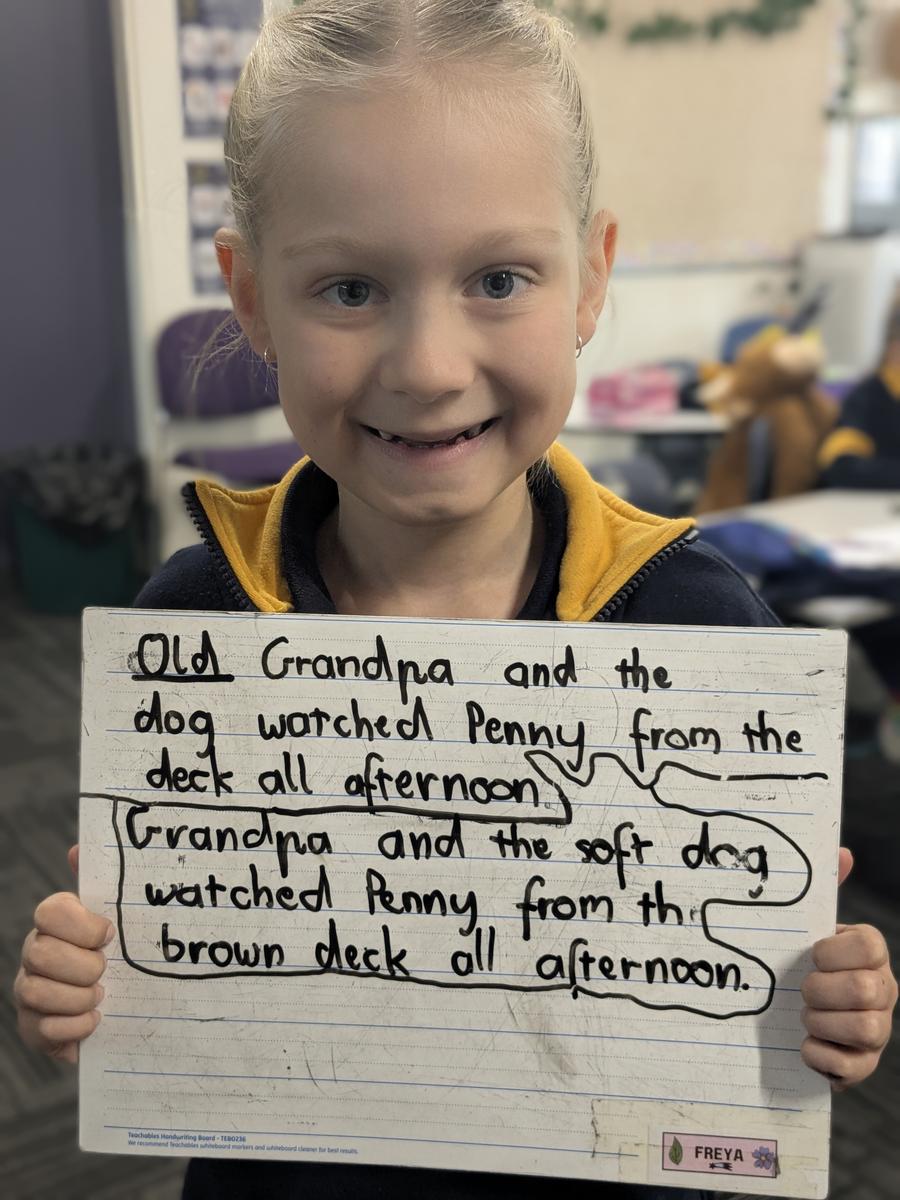 Old Grandpa and the
dog watched Penny from the
deck all afternoon.
Grandpa and the soft dog
watched Penny from the
brown deck all afternoon.
Teachables Handwriting Board - TEB0236
We recommend Teachables whiteboard markers and whiteboard cleaner for best results.
FREYA